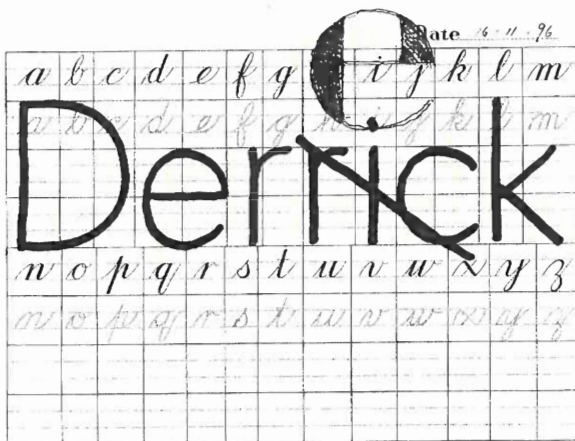 Date 16·11·96
a b c d e f g i j k l m
a b c d e f g h i j k l m
Derrick
n o p q r s t u v w x y z
n o p q r s t u v w x y z